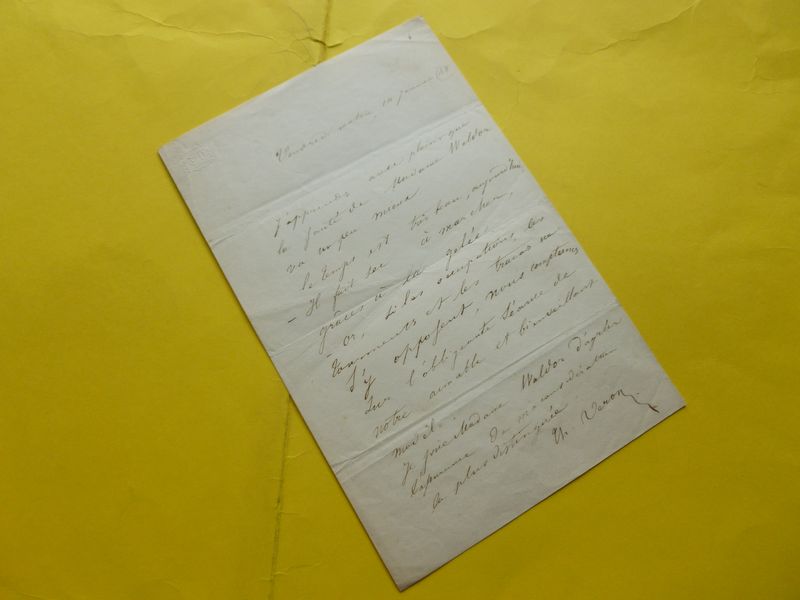 Vendredi matin, 10 janvier
J'apprends avec plaisir que
la santé de Madame Waldor
va un peu mieux
le temps est très beau, aujourd'hui,
- Il fait sec à marcher,
grâces à la gelée.
- or, si les occupations, les
tourments et les travaux ne
s'y opposent, nous comptons
sur l'obligeante séance de
notre aimable et bienveillant
modèle.
je prie Madame Waldor d'agréer
l'expression de ma considération
la plus distinguée.
Th. Veron